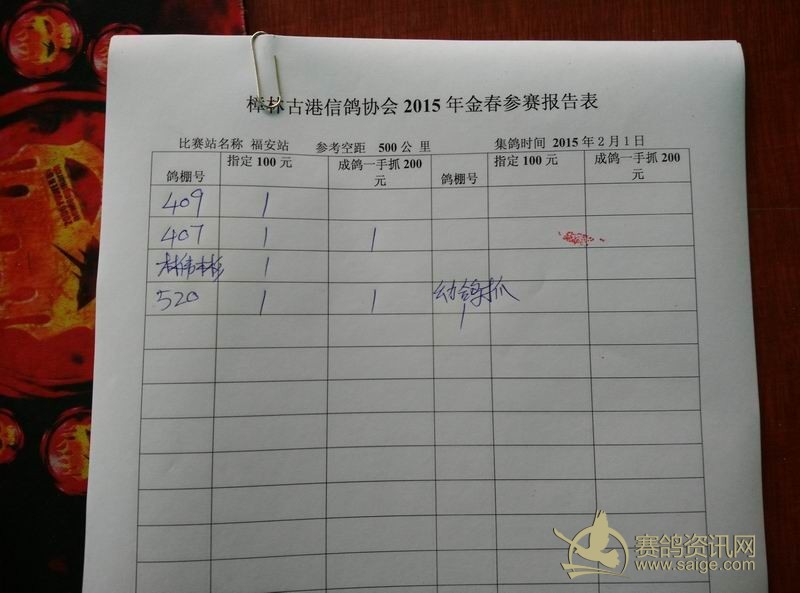 樟林古港信鸽协会 2015 年金春参赛报告表
比赛站名称 福安站 参考空距 500 公 里 集鸽时间 2015 年 2 月 1 日
鸽棚号 指定 100 元 成鸽一手抓 200 元 鸽棚号 指定 100 元 成鸽一手抓 200 元
409 1
407 1 1
林伟彬 1
520 1 1 幼鸽抓
1
赛鸽资讯网
www.saige.com